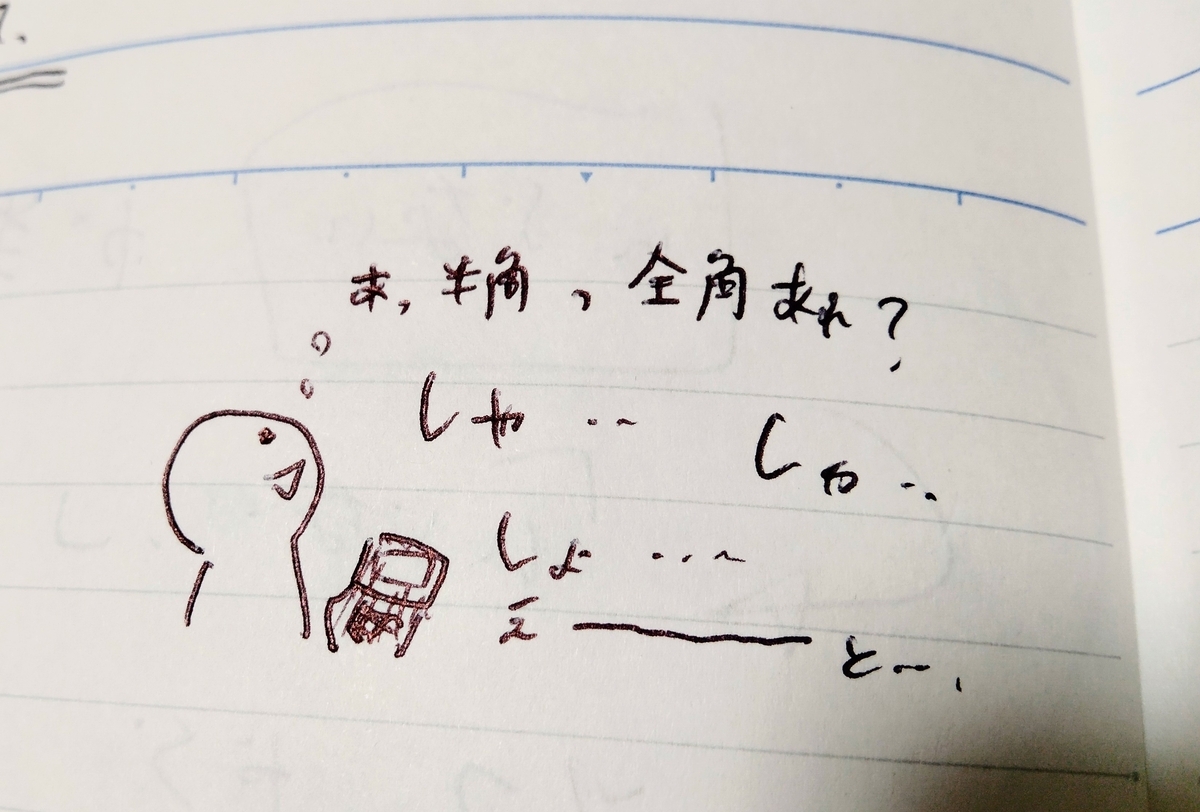 あ, 半角, 全角あれ?
しゃ‥ しゃ‥
しょ…
え――と…